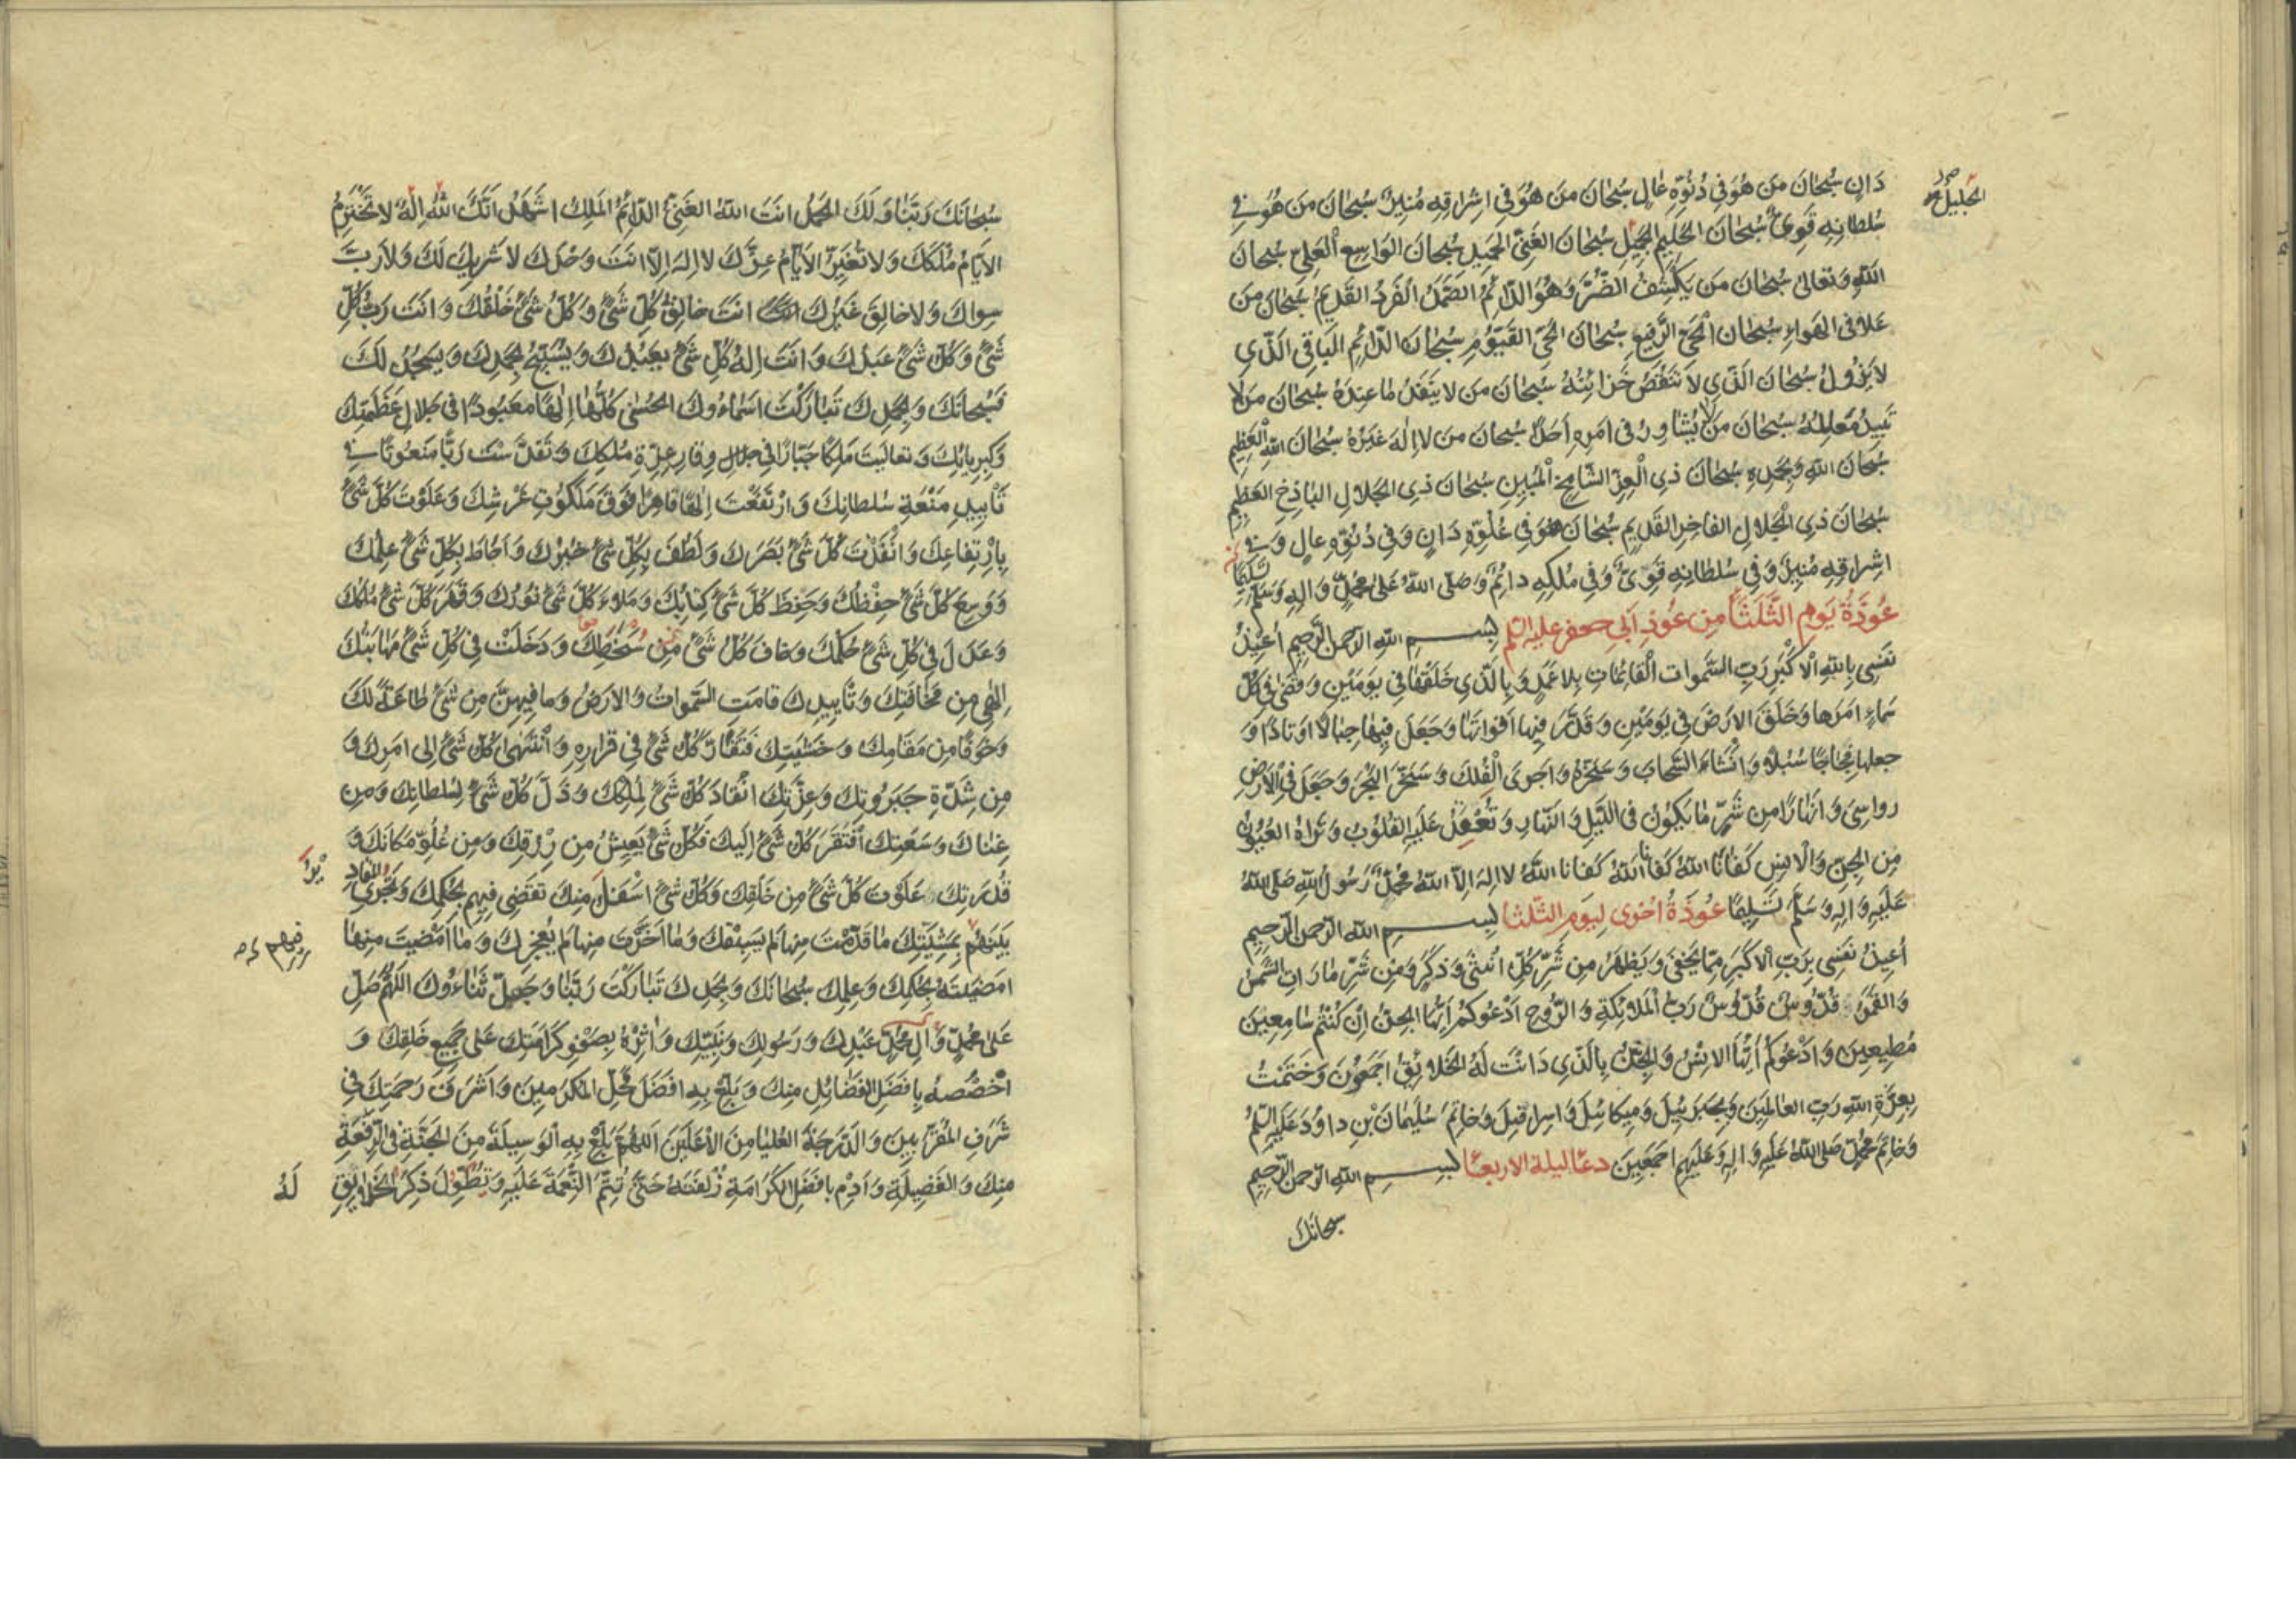 دَانٍ سُبْحَانَ مَنْ هُوَ فِي دُنُوِّهِ عَالٍ سُبْحَانَ مَنْ هُوَ فِي اِشْرَاقِهِ مُنِيرٌ سُبْحَانَ مَنْ هُوَ فِي
الجليل
سُلْطَانِهِ قَوِيٌّ سُبْحَانَ الْحَلِيمِ الْجَمِيلِ سُبْحَانَ الْغَنِيِّ الْحَمِيدِ سُبْحَانَ الْوَاسِعِ الْعَلِيِّ سُبْحَانَ
اللهِ وَتَعَالَى سُبْحَانَ مَنْ يَكْشِفُ الضُّرَّ وَهُوَ الدَّائِمُ الصَّمَدُ الْفَرْدُ الْقَدِيمُ سُبْحَانَ مَنْ
عَلَا فِي الْهَوَاءِ سُبْحَانَ الْحَيِّ الرَّفِيعِ سُبْحَانَ الْحَيِّ الْقَيُّومِ سُبْحَانَ الدَّائِمِ الْبَاقِي الَّذِي
لَا يَزُولُ سُبْحَانَ الَّذِي لَا تَنْقُصُ خَزَائِنُهُ سُبْحَانَ مَنْ لَا يَنْفَدُ مَا عِنْدَهُ سُبْحَانَ مَنْ لَا
تَبِيدُ مَعَالِمُهُ سُبْحَانَ مَنْ لَا يُشَاوِرُ فِي اَمْرِهِ اَحَدًا سُبْحَانَ مَنْ لَا اِلٰهَ غَيْرُهُ سُبْحَانَ اللهِ الْعَظِيمِ
سُبْحَانَ اللهِ وَبِحَمْدِهِ سُبْحَانَ ذِي الْعِزِّ الشَّامِخِ الْمُبِينِ سُبْحَانَ ذِي الْجَلَالِ الْبَاذِخِ الْعَظِيمِ
سُبْحَانَ ذِي الْجَلَالِ الْفَاخِرِ الْقَدِيمِ سُبْحَانَ مَنْ هُوَ فِي عُلُوِّهِ دَانٍ وَفِي دُنُوِّهِ عَالٍ وَفِي
اِشْرَاقِهِ مُنِيرٌ وَفِي سُلْطَانِهِ قَوِيٌّ وَفِي مُلْكِهِ دَائِمٌ وَصَلَّى اللهُ عَلَى مُحَمَّدٍ وَالِهِ وَسَلَّمَ تَسْلِيمًا
عُوذَةُ يَوْمِ الثَّلَثَا مِنْ عُوَذِ اَبِي جعفر عليه السلم بِسْمِ اللهِ الرَّحْمٰنِ الرَّحِيمِ اُعِيذُ
نَفْسِي بِاللهِ الْاَكْبَرِ رَبِّ السَّمٰوَاتِ الْقَائِمَاتِ بِلَا عَمَدٍ وَبِالَّذِي خَلَقَهَا فِي يَوْمَيْنِ وَقَضَى فِي كُلِّ
سَمَاءٍ اَمْرَهَا وَخَلَقَ الْاَرْضَ فِي يَوْمَيْنِ وَقَدَّرَ فِيهَا اَقْوَاتَهَا وَجَعَلَ فِيهَا جِبَالًا اَوْتَادًا وَ
جَعَلَهَا فِجَاجًا سُبُلًا وَاَنْشَاَ السَّحَابَ وَسَخَّرَهُ وَاَجْرَى الْفُلْكَ وَسَخَّرَ الْبَحْرَ وَجَعَلَ فِي الْاَرْضِ
رَوَاسِيَ وَاَنْهَارًا مِنْ شَرِّ مَا يَكُونُ فِي اللَّيْلِ وَالنَّهَارِ وَتُعْقَدُ عَلَيْهِ الْقُلُوبُ وَتَرَاهُ الْعُيُونُ
مِنَ الْجِنِّ وَالْاِنْسِ كَفَانَا اللهُ كَفَانَا اللهُ كَفَانَا اللهُ لَا اِلٰهَ اِلَّا اللهُ مُحَمَّدٌ رَسُولُ اللهِ صَلَّى اللهُ
عَلَيْهِ وَالِهِ وَسَلَّمَ تَسْلِيمًا عُوذَةٌ اُخْرَى لِيَوْمِ الثَّلثَا بِسْمِ اللهِ الرَّحْمٰنِ الرَّحِيمِ
اُعِيذُ نَفْسِي بِرَبِّي الْاَكْبَرِ مِمَّا يَخْفَى وَيَظْهَرُ مِنْ شَرِّ كُلِّ اُنْثَى وَذَكَرٍ وَمِنْ شَرِّ مَا رَاَتِ الشَّمْسُ
وَالْقَمَرُ قُدُّوسٌ قُدُّوسٌ رَبُّ الْمَلَائِكَةِ وَالرُّوحِ اَدْعُوكُمْ اَيُّهَا الْجِنُّ اِنْ كُنْتُمْ سَامِعِينَ
مُطِيعِينَ وَاَدْعُوكُمْ اَيُّهَا الْاِنْسُ وَالْجِنُّ بِالَّذِي دَانَتْ لَهُ الْخَلَائِقُ اَجْمَعُونَ وَخَتَمْتُ
بِعِزَّةِ اللهِ رَبِّ الْعَالَمِينَ وَبِجَبْرَئِيلَ وَمِيكَائِيلَ وَاِسْرَافِيلَ وَخَاتَمِ سُلَيْمَانَ بْنِ دَاوُدَ عَلَيْهِ السَّلمُ
وَخَاتَمِ مُحَمَّدٍ صَلَّى اللهُ عَلَيْهِ وَالِهِ وَعَلَيْهِمْ اَجْمَعِينَ دعا ليلة الاربعا بِسْمِ اللهِ الرَّحْمٰنِ الرَّحِيمِ
سبحانَكَ
سُبْحَانَكَ رَبَّنَا وَلَكَ الْحَمْدُ اَنْتَ اللهُ الْغَنِيُّ الدَّائِمُ الْمَلِكُ اَشْهَدُ اَنَّكَ اللهُ اِلٰهٌ لَا تَخْتَرِمُ
الْاَيَّامُ مُلْكَكَ وَلَا تُغَيِّرُ الْاَيَّامُ عِزَّكَ لَا اِلٰهَ اِلَّا اَنْتَ وَحْدَكَ لَا شَرِيكَ لَكَ وَلَا رَبَّ
سِوَاكَ وَلَا خَالِقَ غَيْرُكَ اَنْتَ خَالِقُ كُلِّ شَيْءٍ وَكُلُّ شَيْءٍ خَلْقُكَ وَاَنْتَ رَبُّ كُلِّ
شَيْءٍ وَكُلُّ شَيْءٍ عَبْدُكَ وَاَنْتَ اِلٰهُ كُلِّ شَيْءٍ يَعْبُدُكَ وَيُسَبِّحُ بِحَمْدِكَ وَيَسْجُدُ لَكَ
فَسُبْحَانَكَ وَبِحَمْدِكَ تَبَارَكَتْ اَسْمَاءُوكَ الْحُسْنَى كُلُّهَا اِلٰهًا مَعْبُودًا فِي جَلَالِ عَظَمَتِكَ
وَكِبْرِيَائِكَ وَتَعَالَيْتَ مَلِكًا جَبَّارًا فِي جلال وَقَارِ عِزَّةِ مُلْكِكَ وَتَقَدَّسْتَ رَبًّا مَنْعُوتًا فِي
تَأْيِيدِ مَنْعَةِ سُلْطَانِكَ وَارْتَفَعْتَ اِلٰهًا قَاهِرًا فَوْقَ مَلَكُوتِ عَرْشِكَ وَعَلَوْتَ كُلَّ شَيْءٍ
بِارْتِفَاعِكَ وَاَنْفَذْتَ كُلَّ شَيْءٍ بَصَرَكَ وَلَطُفَ بِكُلِّ شَيْءٍ خُبْرُكَ وَاَحَاطَ بِكُلِّ شَيْءٍ عِلْمُكَ
وَوَسِعَ كُلَّ شَيْءٍ حِفْظُكَ وَحَفِظَ كُلَّ شَيْءٍ كِتَابُكَ وَمَلَاءَ كُلَّ شَيْءٍ نُورُكَ وَقَهَرَ كُلَّ شَيْءٍ مُلْكُكَ
وَعَدَلَ فِي كُلِّ شَيْءٍ حُكْمُكَ وَخَافَ كُلُّ شَيْءٍ مِنْ سَخَطِكَ وَدَخَلَتْ فِي كُلِّ شَيْءٍ مَهَابَتُكَ
اِلٰهِي مِنْ مَخَافَتِكَ وَتَأْيِيدِكَ قَامَتِ السَّمٰوَاتُ وَالْاَرْضُ وَمَا فِيهِنَّ مِنْ شَيْءٍ طَاعَةً لَكَ
وَخَوْفًا مِنْ مَقَامِكَ وَخَشْيَتِكَ فَتَقَارَّ كُلُّ شَيْءٍ فِي قَرَارِهِ وَانْتَهَى كُلُّ شَيْءٍ اِلَى اَمْرِكَ وَ
مِنْ شِدَّةِ جَبَرُوتِكَ وَعِزَّتِكَ انْقَادَ كُلُّ شَيْءٍ لِمُلْكِكَ وَذَلَّ كُلُّ شَيْءٍ لِسُلْطَانِكَ وَمِنْ
غِنَاكَ وَسَعَتِكَ افْتَقَرَ كُلُّ شَيْءٍ اِلَيْكَ فَكُلُّ شَيْءٍ يَعِيشُ مِنْ رِزْقِكَ وَمِنْ عُلُوِّ مَكَانِكَ وَ
قُدْرَتِكَ عَلَوْتَ كُلَّ شَيْءٍ مِنْ خَلْقِكَ وَكُلُّ شَيْءٍ اَسْفَلُ مِنْكَ تَقْضِي فِيهِمْ بِحُكْمِكَ وَتَجْرِي الْمَقَادِيرُ
بَيْنَهُمْ بِمَشِيَّتِكَ مَا قَدَّمْتَ مِنْهَا لَمْ يَسْبِقْكَ وَمَا اَخَّرْتَ مِنْهَا لَمْ يُعْجِزْكَ وَمَا اَمْضَيْتَ مِنْهَا
فيهم
اَمْضَيْتَهُ بِحُكْمِكَ وَعِلْمِكَ سُبْحَانَكَ وَبِحَمْدِكَ تَبَارَكْتَ رَبَّنَا وَجَلَّ ثَنَاءُوكَ اَللّٰهُمَّ صَلِّ
عَلَى مُحَمَّدٍ وَالِ مُحَمَّدٍ عَبْدِكَ وَرَسُولِكَ وَنَبِيِّكَ وَاٰثِرْهُ بِصَفْوِ كَرَامَتِكَ عَلَى جَمِيعِ خَلْقِكَ وَ
اخْصُصْهُ بِاَفْضَلِ الْفَضَائِلِ مِنْكَ وَبَلِّغْ بِهِ اَفْضَلَ مَحَلِّ الْمُكَرَّمِينَ وَاَشْرَفَ رَحْمَتِكَ فِي
شَرَفِ الْمُقَرَّبِينَ وَالدَّرَجَةَ الْعُلْيَا مِنَ الْاَعْلَيْنَ اَللّٰهُمَّ بَلِّغْ بِهِ الْوَسِيلَةَ مِنَ الْجَنَّةِ فِي الرِّفْعَةِ
مِنْكَ وَالْفَضِيلَةِ وَاَدِمْ بِاَفْضَلِ الْكَرَامَةِ زُلْفَتَهُ حَتَّى تُتِمَّ النِّعْمَةَ عَلَيْهِ وَتُطَوِّلَ ذِكْرَ الْخَلَائِقِ
لَهُ